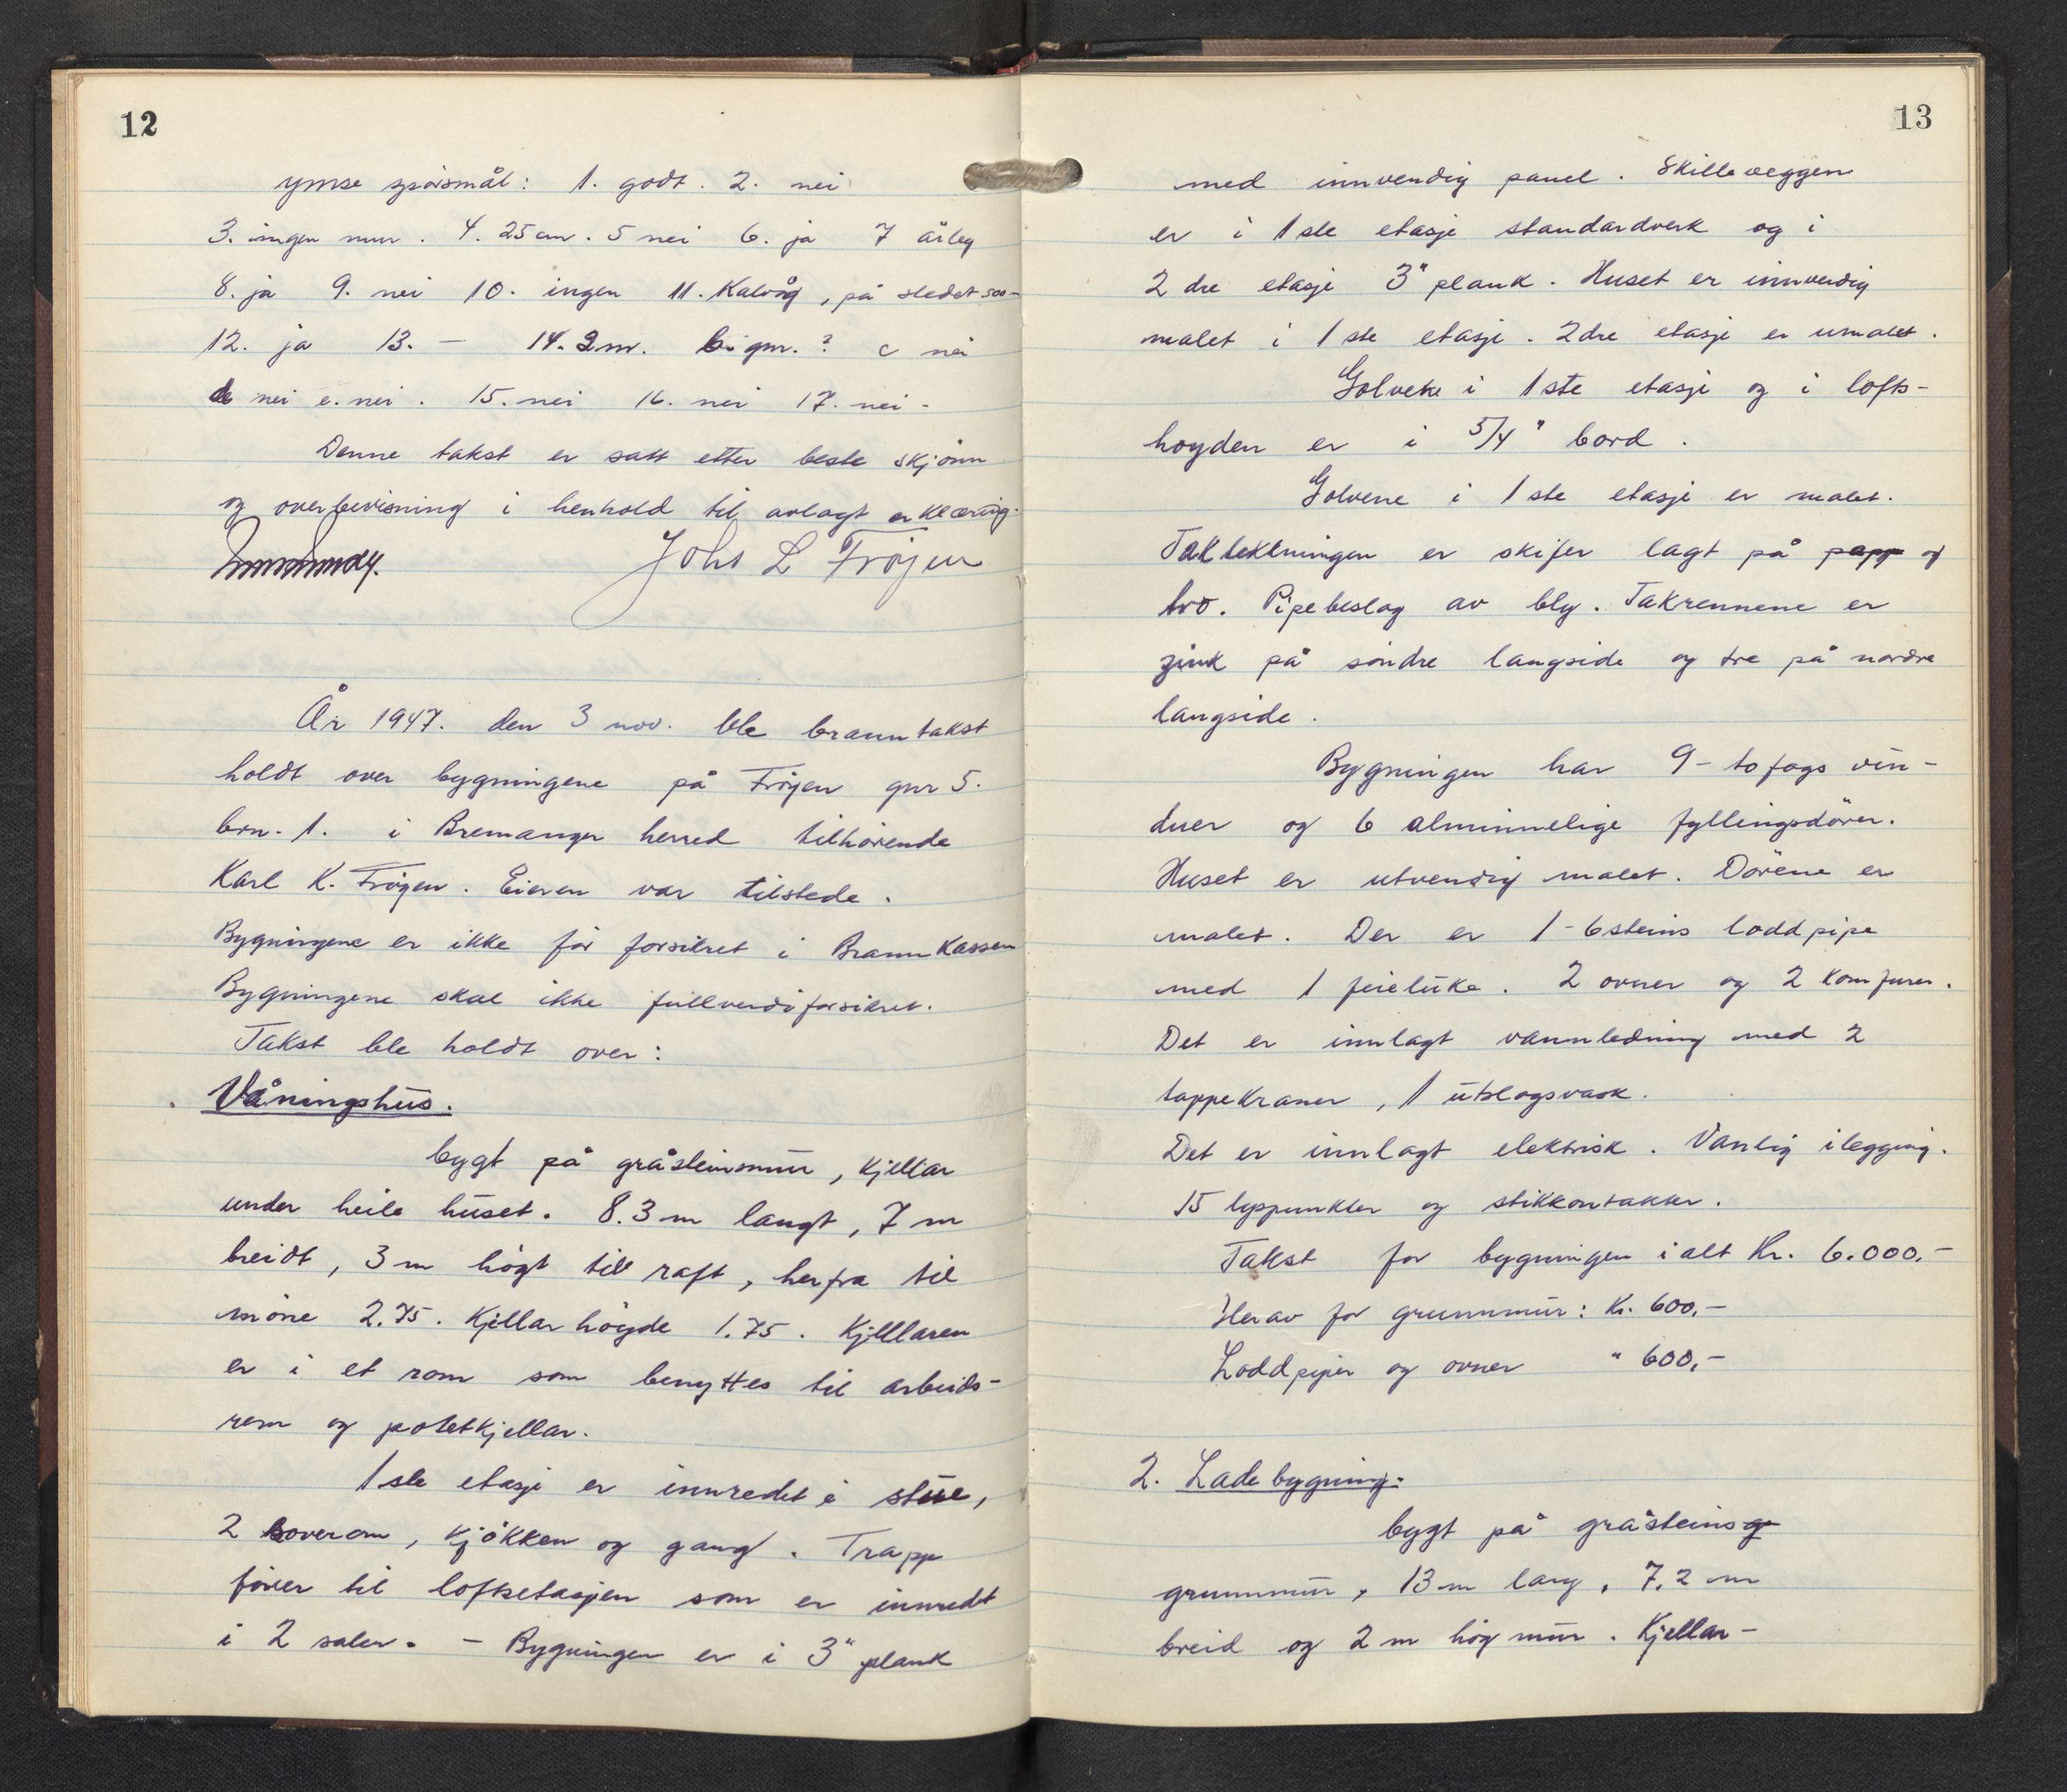 12
ymse spörsmål: 1. godt. 2. nei
3. ingen mur. 4. 25 cm. 5 nei 6. ja 7 årleg
8. ja 9. nei 10. ingen 11. Kalvåg, på stedet 500-
12. ja 13. - 14. 2 m. b. gnr. ? c nei
d nei e. nei. 15. nei 16. nei 17. nei-
Denne takst er satt etter beste skjönn
og overbevisning i henhold til avlagt erklæring.
Johs L Fröjen
År 1947. den 3 nov. ble branntakst
holdt over bygningene på Fröyen gnr 5.
brn. 1. i Bremanger herred tilhörende
Karl K. Fröyen. Eieren var tilstede.
Bygningene er ikke för forsikret i Brannkassen
Bygningene skal ikke fullverdiforsikret.
Takst ble holdt over:
Våningshus.
bygt på gråsteinsmur, kjellar
under heile huset. 8.3 m langt, 7 m
breidt, 3 m högt till raft, herfra til
möne 2.75. Kjellar höyde 1.75. Kjelllaren
er i et rom som benyttes til arbeids-
rom og potetkjellar.
1ste etasje er innredet i stue,
2 soverom, kjökken og gang. Trapp
förer til loftsetasjen som er innredt
i 2 saler. - Bygningen er i 3" plank
13
med innvendig panel. Skilleveggen
er i 1ste etasje standardverk og i
2 dre etasje 3" plank. Huset er innvendig
malet i 1 ste etasje. 2dre etasje er umalet.
Golvene i 1ste etasje og i lofts-
hoyden er i 5/4" bord.
Golvene i 1 ste etasje er malet.
Taktekkningen er skifer lagt på papp og
tro. Pipebeslag av bly. Takrennene er
zink på söndre langside og tre på nordre
langside.
Bygningen har 9- tofags vin-
duer og 6 alminnelige fyllingsdörer.
Huset er utvendig malet. Dörene er
malet. Der er 1-6steins loddpipe
med 1 feieluke. 2 ovner og 2 komfurer.
Det er innlagt vannledning med 2
tappekraner, 1 utslagsvask.
Det er innlagt elektrisk. Vanlig ilegging.
15 lyspunkter og stikkontakter.
Takst for bygningen ialt Kr. 6.000.-
Herav for grunnmur: Kr. 600,-
Loddpiper og ovner " 600,-
2. Ladebygning:
bygt på gråsteinsg
grunnmur, 13 m lang, 7,2 m
breid og 2 m hög mur. Kjellar-